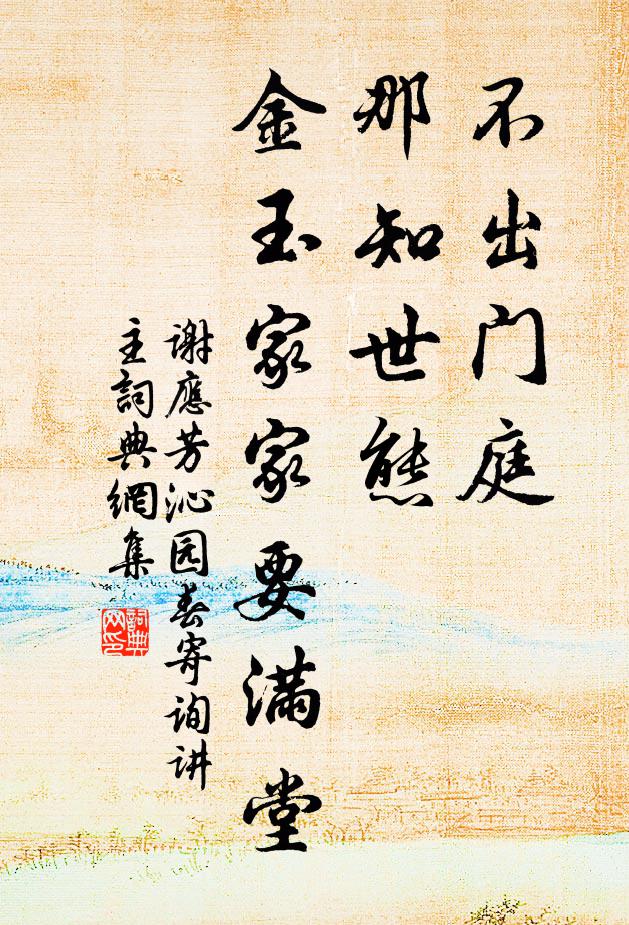 不出门庭
那知世態
金玉家家要满堂
谢應芳沁园春寄询讲
主詞典網集
詞典
网印